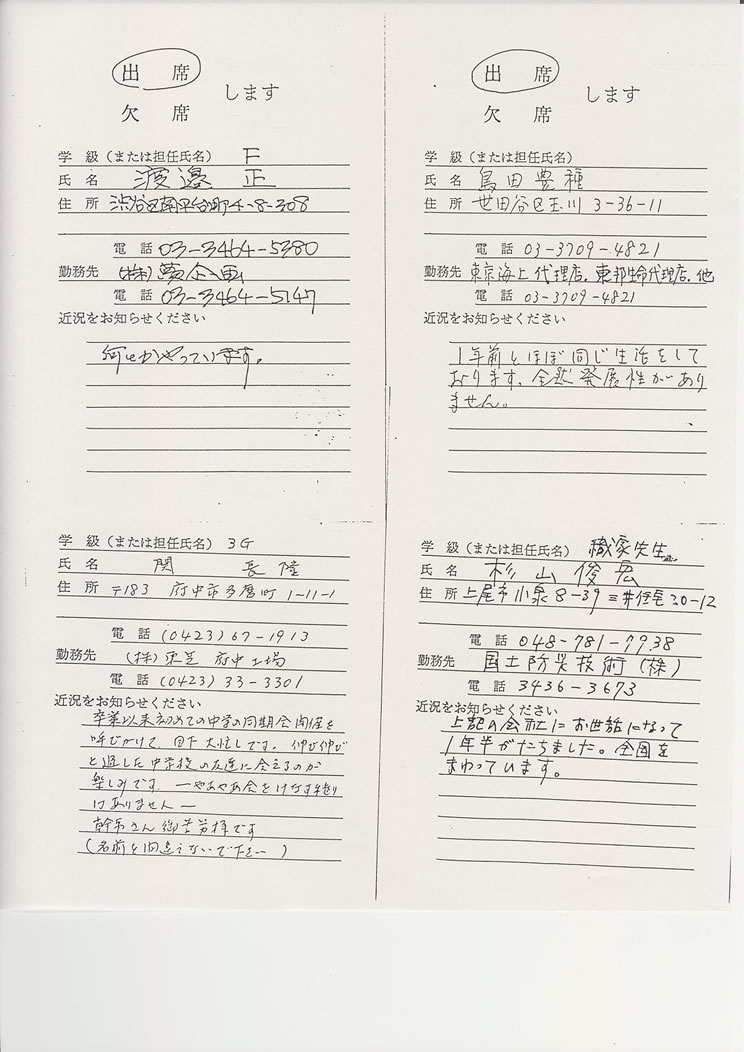 出 席
欠 席
します
学 級（または担任氏名） F
氏 名 渡邉 正
住 所 渋谷区南平台町4-8-308
電 話 03-3464-5380
勤務先 (株)夢企画
電 話 03-3464-5147
近況をお知らせください
何とかやっています。
出 席
欠 席
します
学 級（または担任氏名）
氏 名 島田豊種
住 所 世田谷区玉川 3-36-11
電 話 03-3709-4821
勤務先 東京海上代理店．東邦生命代理店．他
電 話 03-3709-4821
近況をお知らせください
1年前とほぼ同じ生活をして
おります。全然発展性があり
ません。
学 級（または担任氏名） 3G
氏 名 関 長隆
住 所 〒183 府中市多磨町 1-11-1
電 話 (0423)67-1913
勤務先 (株)東芝 府中工場
電 話 (0423)33-3301
近況をお知らせください
卒業以来初めての中学の同期会開催を
呼びかけて、目下大忙しです。伸び伸び
と過した中学校の友達に会えるのが
楽しみです。
はありません－
幹事さん御苦労様です
(名前を間違えないで下さい)
学 級（または担任氏名） 織家先生
氏 名 杉山俊宏
住 所 上尾市小泉8-39 三井住宅30-12
電 話 048-781-7938
勤務先 国土防災技術(株)
電 話 3436-3673
近況をお知らせください
上記の会社にお世話になって
1年半がたちました。全国を
まわっています。